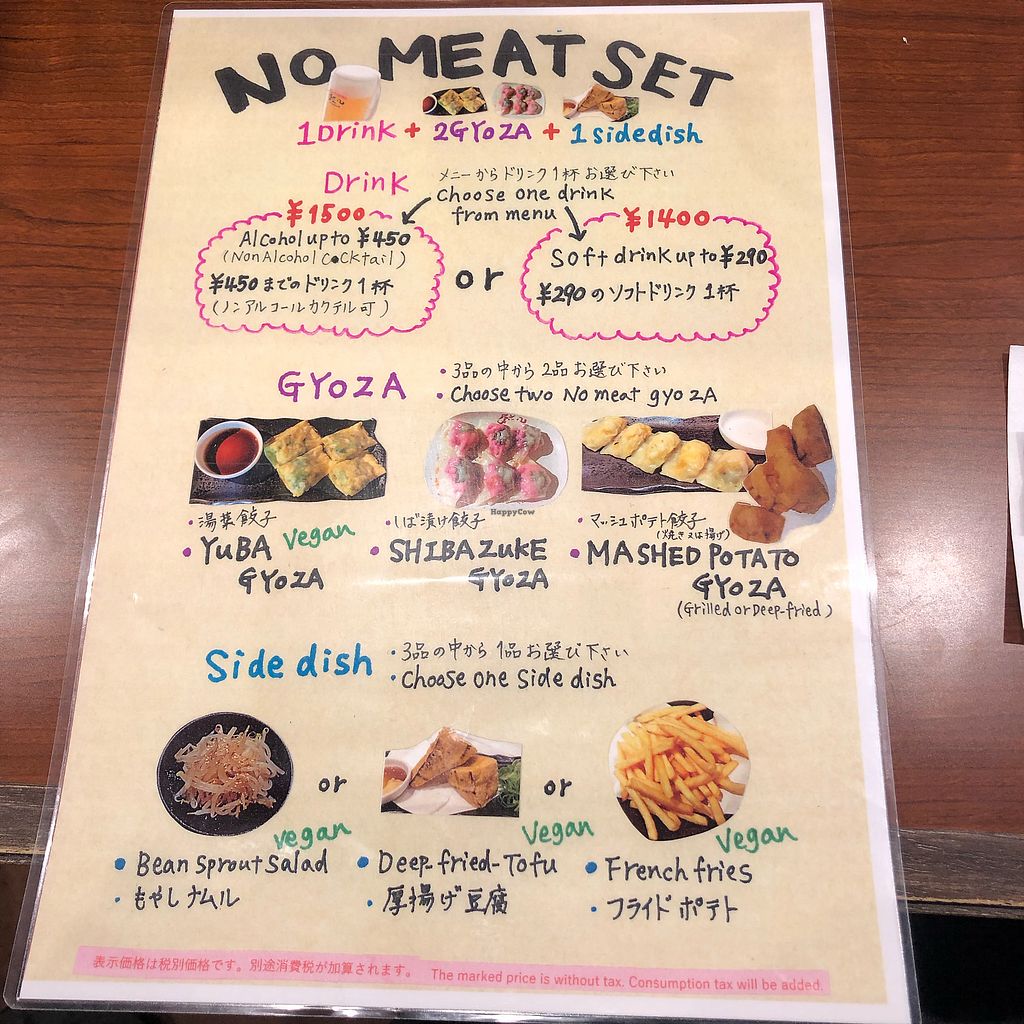 NO MEAT SET
1Drink + 2GYoZA + 1sidedish
Drink
メニューからドリンク1杯お選び下さい
Choose one drink
from menu
¥1500
Alcohol up to ¥450
(NonAlcohol Cocktail)
¥450までのドリンク1杯
(ノンアルコールカクテル可)
or
¥1400
Soft drink up to ¥290
¥290のソフトドリンク1杯
GYoZA
・3品の中から2品お選び下さい
・Choose two No meat gyoZA
HappyCow
・湯葉餃子
・YuBA Vegan
GYoZA
・しば漬け餃子
・SHIBAZUKE
GYoZA
・マッシュポテト餃子
(焼き又は揚げ)
・MASHED POTATO
GYoZA
(Grilled or Deep-fried)
Side dish
・3品の中から1品お選び下さい
・Choose one Side dish
or
or
vegan
Vegan
Vegan
• Bean Sprout Salad
・もやしナムル
• Deep fried-Tofu
・厚揚げ豆腐
• French fries
・フライドポテト
表示価格は税別価格です。別途消費税が加算されます。 The marked price is without tax. Consumption tax will be added.